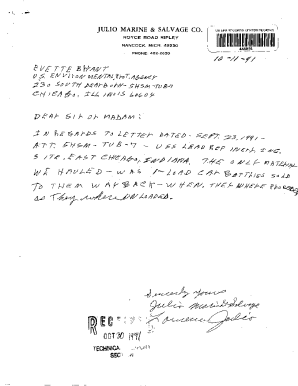 JULIO MARINE & SALVAGE CO.
ROYCE ROAD RIPLEY
HANCOCK, MICH 49930
10-11-91
EVETTE BRYANT
U.S. ENVIRONMENTAL PROT. AGENCY
230 SOUTH DEARBORN-5HSM-TUB-7
CHICAGO, ILLINOIS 60604
DEAR SIR OR MADAM:
IN REGARDS TO LETTER DATED- SEPT. 23, 1991-
ATT. 5HSM-TUB-7- USS LEAD REFINERY, INC.
SITE, EAST CHICAGO, INDIANA. THE ONLY MATERIAL
WE HAULED- WAS 1-LOAD CAR BATTERIES SOLD
TO THEM WAY BACK- WHEN, THEY WHERE
as they where UNLOADED.
Sincerely Yours
Julio Marine & Salvage
Julio
OCT 30 1991